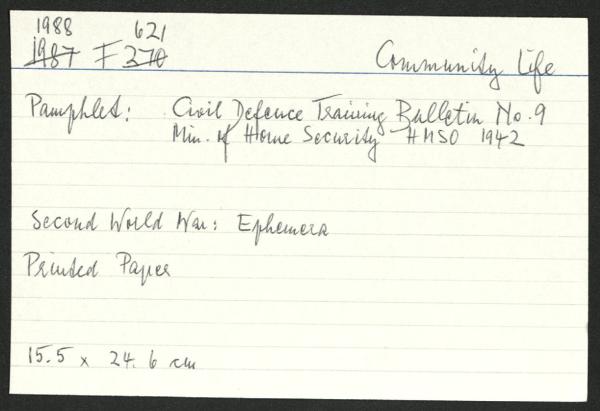 1988 621
1987 F 270 Community Life
Pamphlet: Civil Defence Training Bulletin No. 9
Min. of Home Security HMSO 1942
Second World War: Ephemera
Printed Paper
15.5 x 24.6 cm